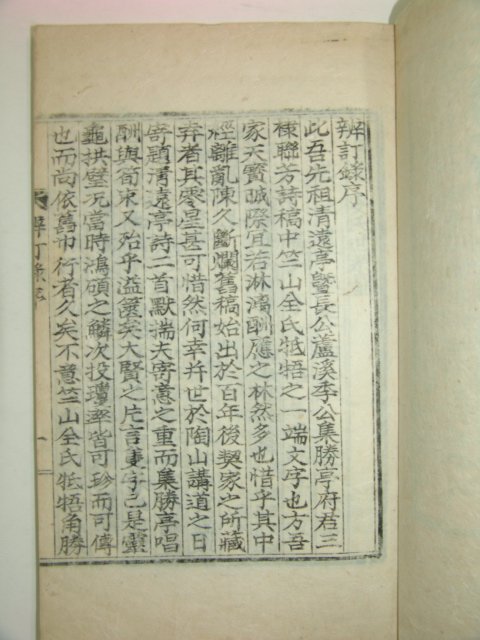 辨訂錄序
此吾先祖清遠亭曁長公蘆溪李公集勝亭府君三
棣聯芳詩稿中竺山全氏牴牾之一端文字也方吾
家天寶誠際宜若淋鴻酬應之林然多也惜乎其中
經離亂陳久斷爛舊稿始出於百年後契家之所藏
弆者其零星甚可惜然何幸幷世於陶山講道之日
寄題清遠亭詩二首默揣夫寄意之重而集勝亭唱
酬與筍束又殆乎溢篋矣大賢之片言隻字已是靈
龜拱璧况當時鴻碩之鱗次投瓊率皆可珍而可傳
也而尚依舊巾衍者久矣不意竺山全氏牴牾角勝
辨訂錄序
一